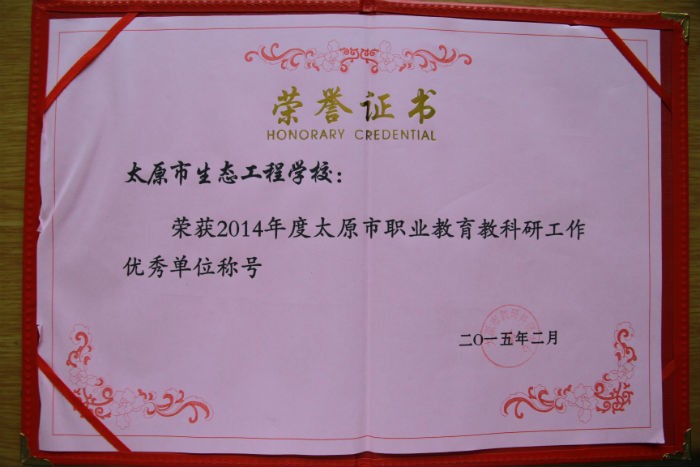 荣誉证书
HONORARY CREDENTIAL
太原市生态工程学校：
荣获2014年度太原市职业教育教科研工作
优秀单位称号
二〇一五年二月